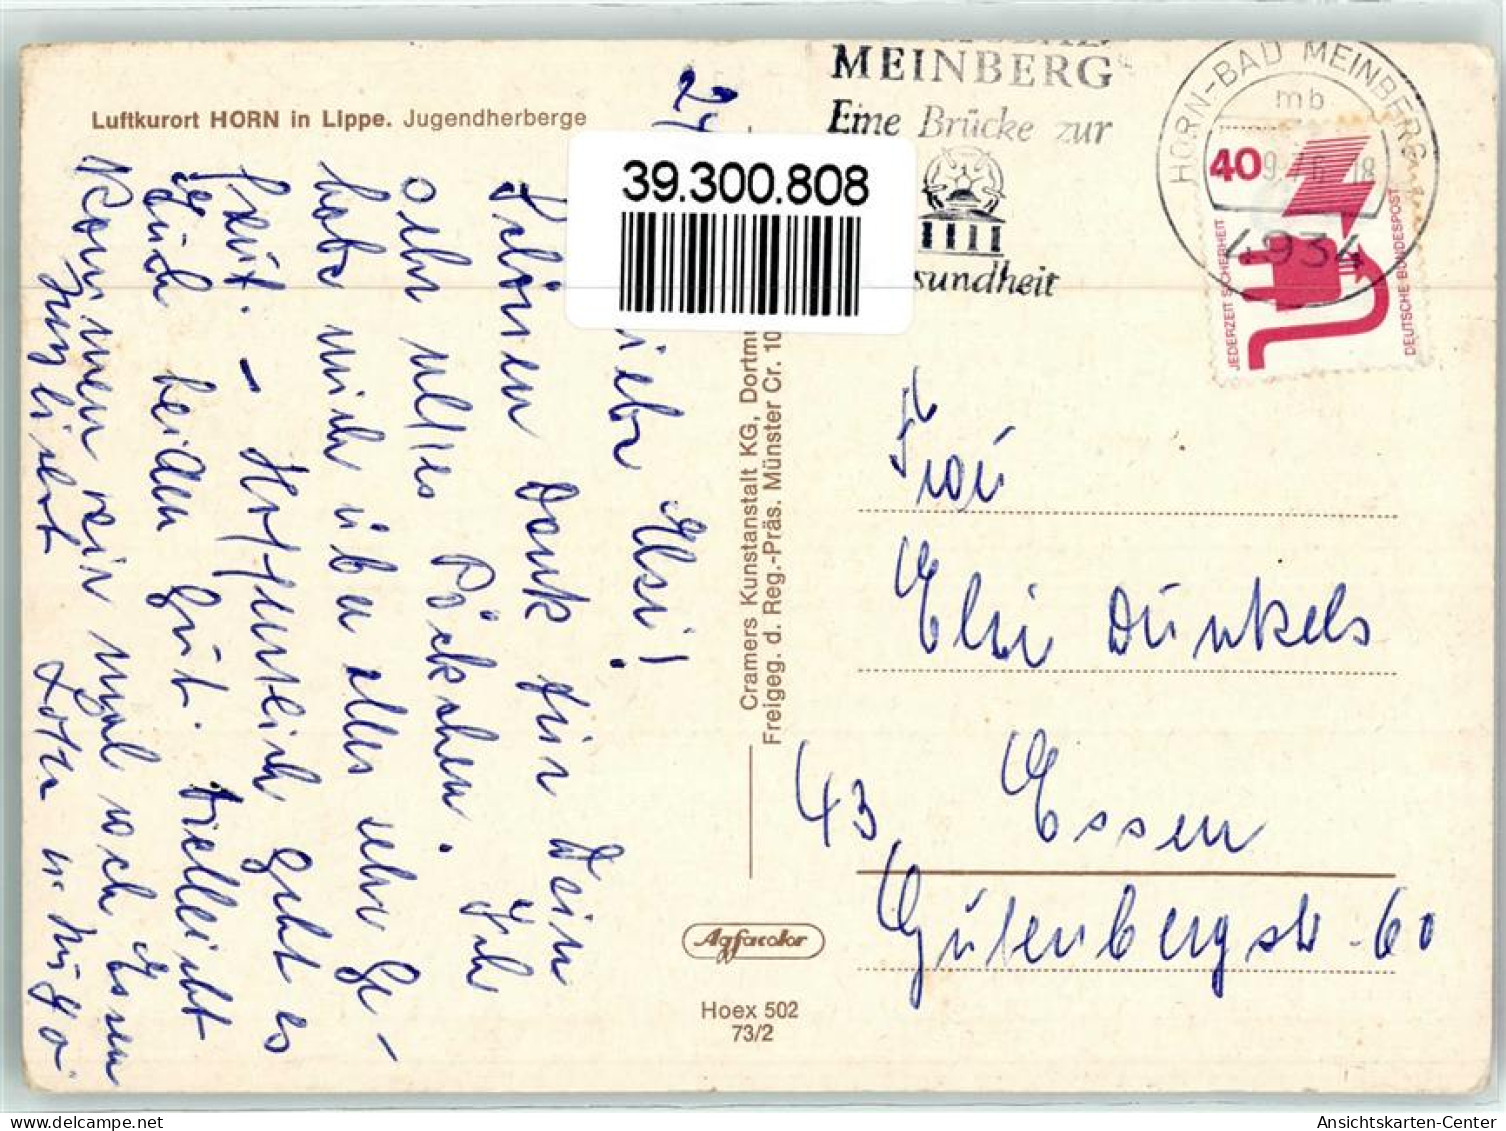 Luftkurort HORN in Lippe. Jugendherberge
24
39.300.808
Liebe Elsi!
Schönen Dank für Dein
sehr nettes Päckchen. Ich
habe mich über alles sehr ge-
freut. – Hoffentlich geht es
Euch beiden gut. Vielleicht
kommen wir mal nach Essen
Herzlichst Lotte u. Hugo
Cramers Kunstanstalt KG, Dortmu
Freigeg. d. Reg.-Präs. Münster Cr. 10
Agfacolor
Hoex 502
73/2
MEINBERG
Eine Brücke zur
sundheit
HORN-BAD MEINBERG
mb
4934
40
JEDERZEIT SICHERHEIT
DEUTSCHE BUNDESPOST
Frau
Elsi Dunkels
43 Essen
Gutenbergstr. 60
delcampe.net
Ansichtskarten-Center